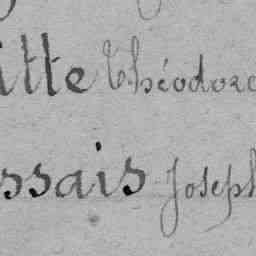 itte Théodore
ssais Joseph